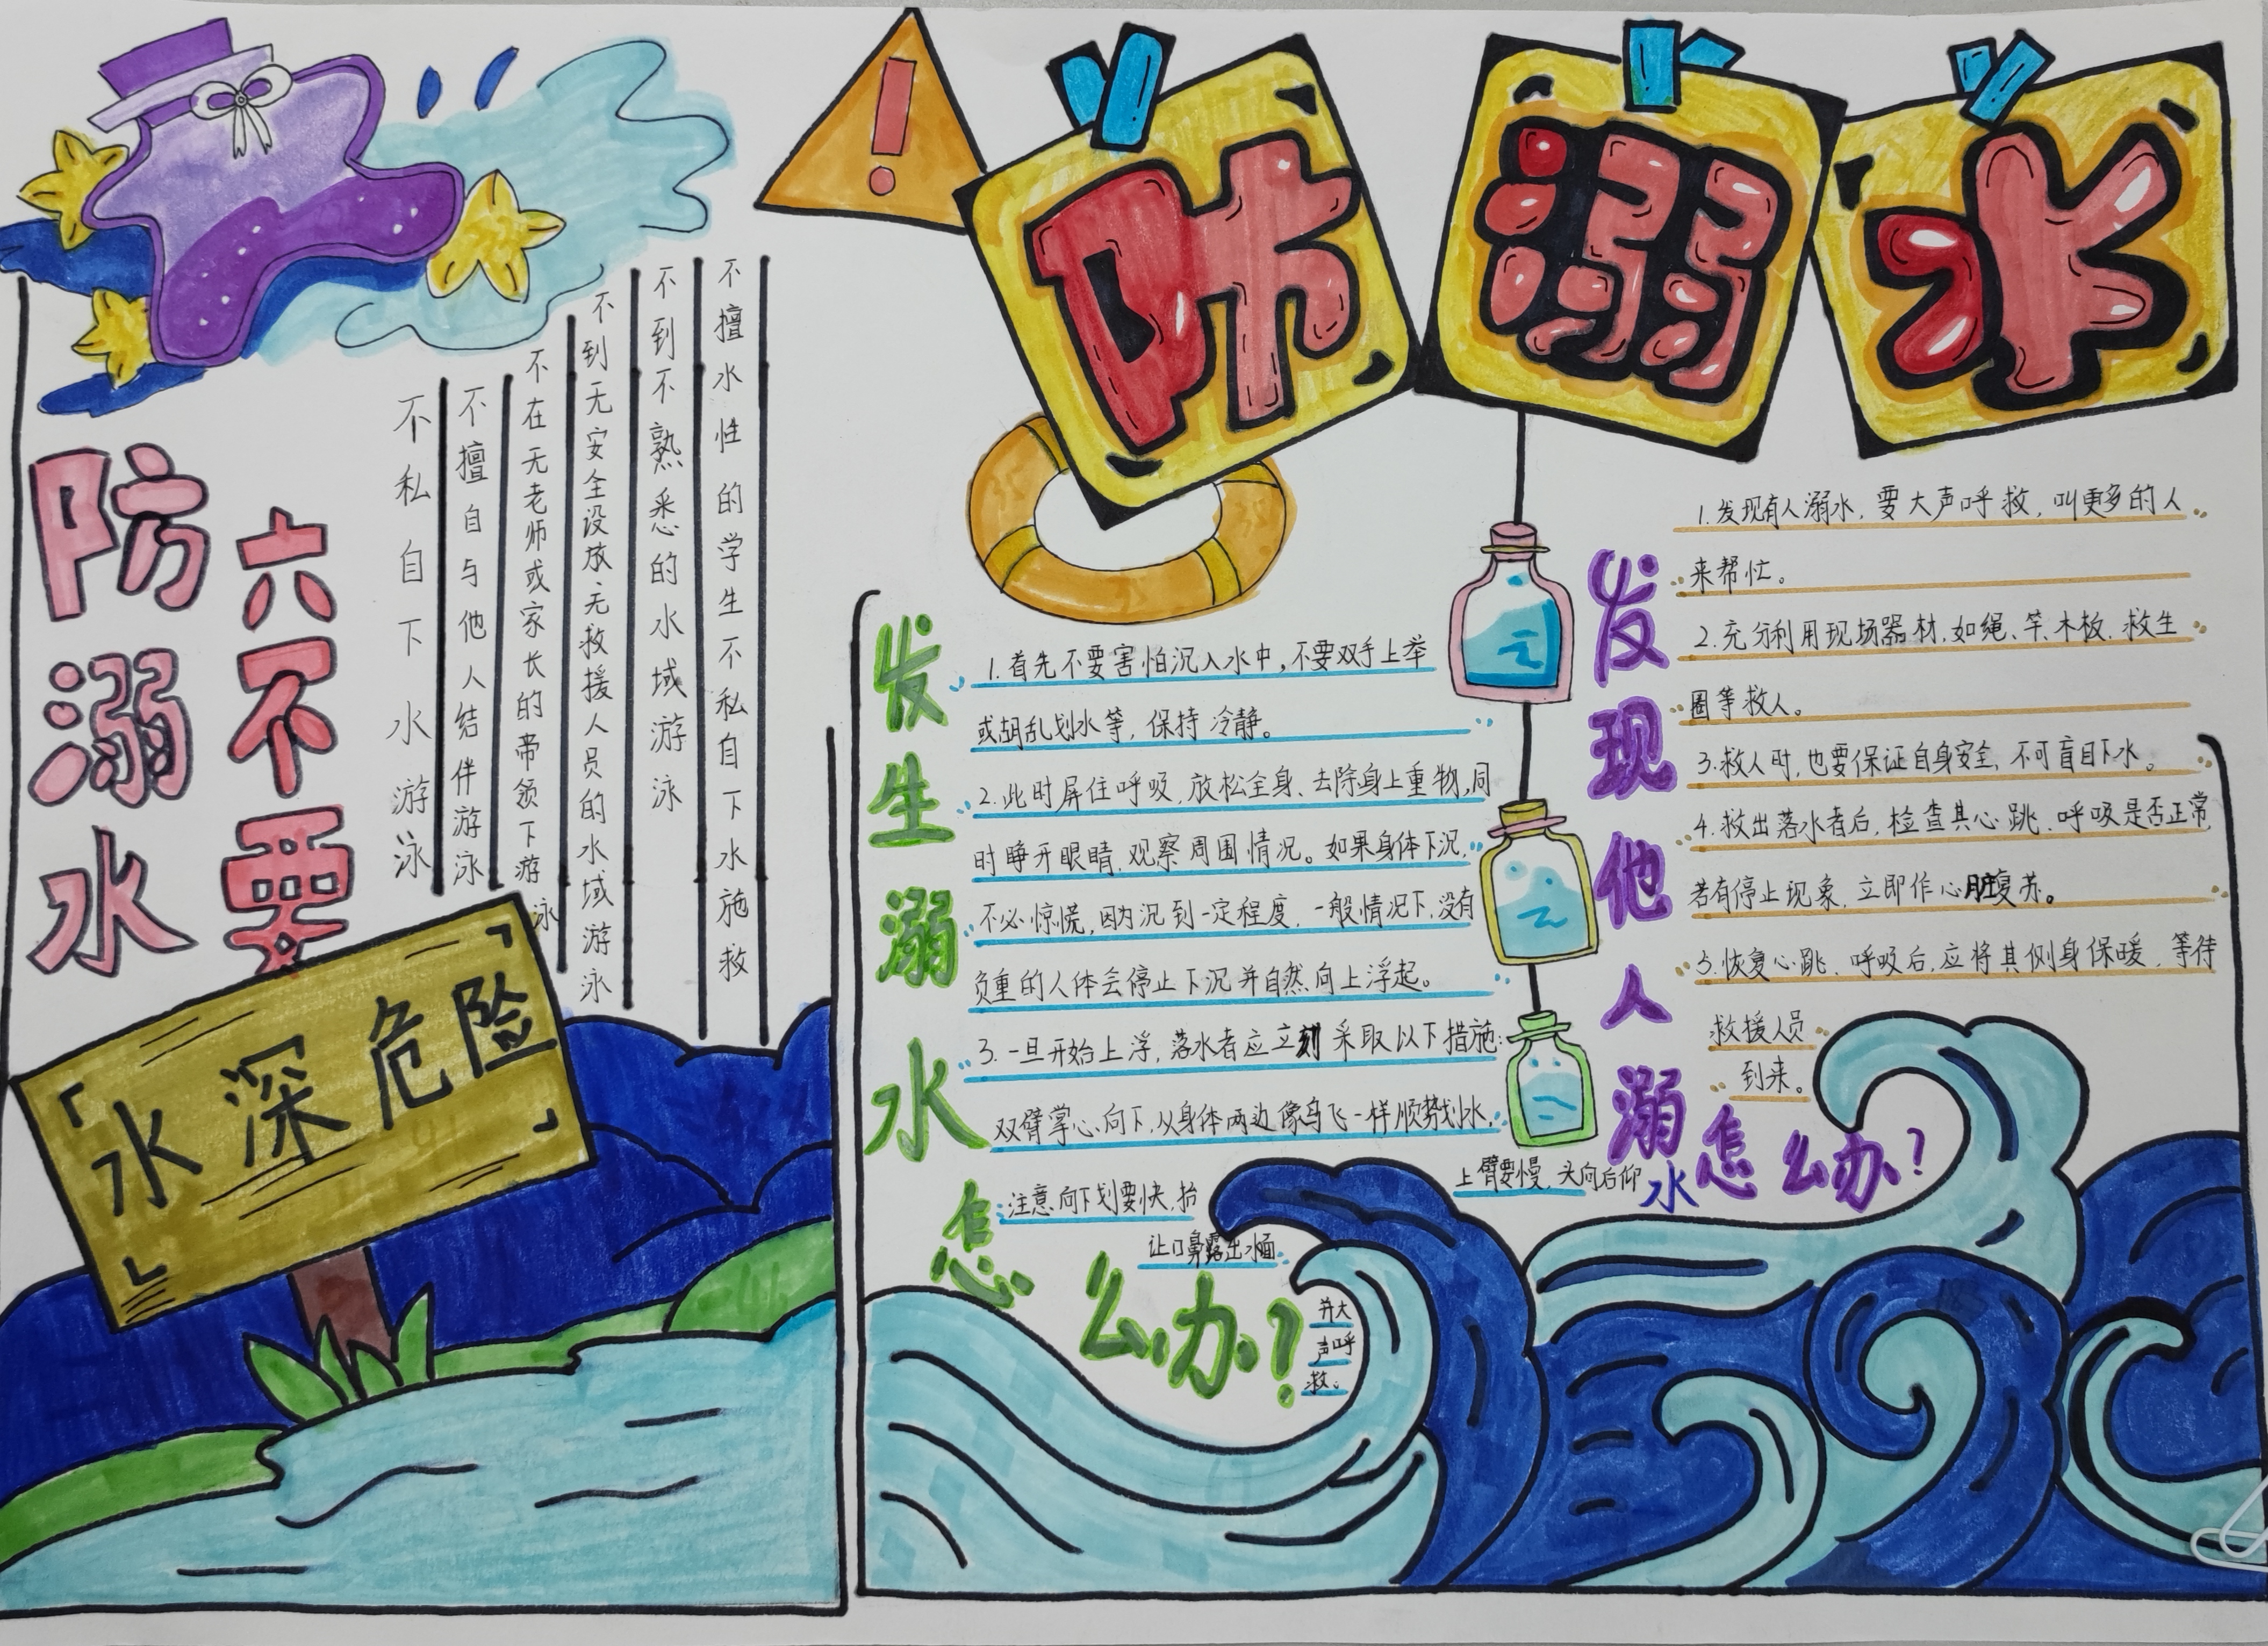 防溺水
防溺水
六不要
不私自下水游泳
不擅自与他人结伴游泳
不在无老师或家长的带领下游泳
不到无安全设放、无救援人员的水域游泳
不到不熟悉的水域游泳
不擅水性的学生不私自下水施救
「水深危险」
发生溺水怎么办?
1.首先不要害怕沉入水中,不要双手上举
或胡乱划水等,保持冷静。
2.此时屏住呼吸,放松全身、去除身上重物,同
时睁开眼睛,观察周围情况。如果身体下沉,
不必惊慌,因为沉到一定程度,一般情况下,没有
负重的人体会停止下沉并自然向上浮起。
3.一旦开始上浮,落水者应立刻采取以下措施:
双臂掌心向下,从身体两边像鸟飞一样顺势划水,
注意向下划要快,抬
上臂要慢,头向后仰
让口鼻露出水面
并大
声呼
救。
发现他人溺水怎么办?
1.发现有人溺水,要大声呼救,叫更多的人
来帮忙。
2.充分利用现场器材,如绳、竿、木板、救生
圈等救人。
3.救人时,也要保证自身安全,不可盲目下水。
4.救出落水者后,检查其心跳、呼吸是否正常,
若有停止现象,立即作心脏复苏。
5.恢复心跳、呼吸后,应将其侧身保暖,等待
救援人员
到来。